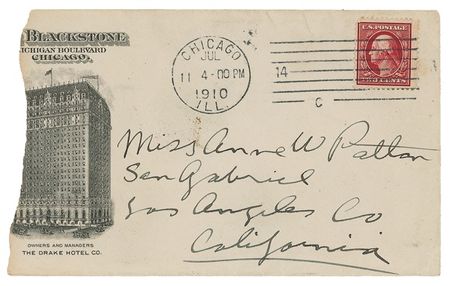 BLACKSTONE
MICHIGAN BOULEVARD
CHICAGO.
CHICAGO
JUL
11 4-00 PM
1910
ILL.
14
C
U.S. POSTAGE
Miss Anne W Patton
San Gabriel
Los Angeles Co
California
OWNERS AND MANAGERS
THE DRAKE HOTEL CO.